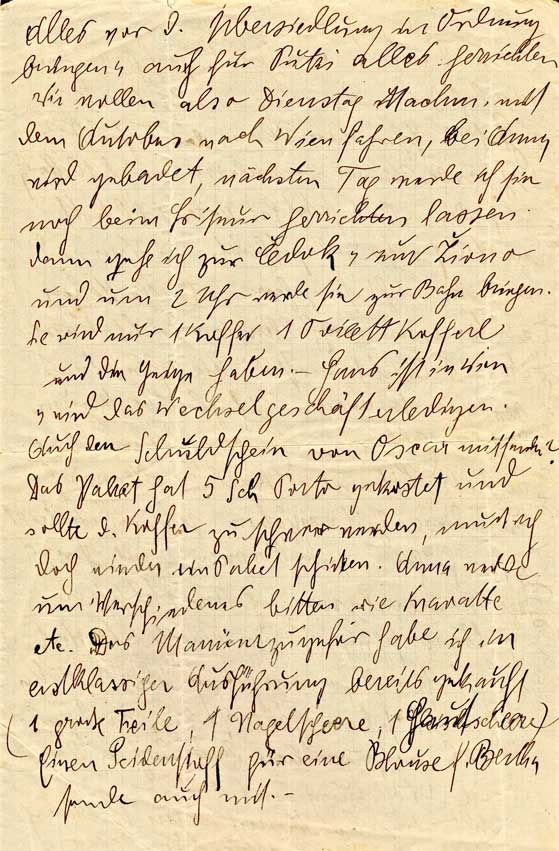 alles vor d. Übersiedlung in Ordnung
bringen u auch für Putzi alles herrichten
Wir wollen also Dienstag Nachm. mit
dem Autobus nach Wien fahren, bei Anny
wird gebadet, nächsten Tag werde ich sie
noch beim Friseur herrichten lassen.
dann gehe ich zur Čedok u auf Ziono
und um 2 Uhr werde sie zur Bahn bringen.
Sie wird nur 1 Koffer 1 Toilett Kofferl
und die Geige haben. – Hans ist in Wien
u wird das Wechselgeschäft erledigen.
Auch den Schuldschein von Oscar mitsenden?
Das Paket hat 5 Sch Porto gekostet und
sollte d. Koffer zu schwer werden, muss ich
doch wieder ein Paket schicken. Anna werde
um Verschiedenes bitten wie Krawatte
etc. Das Manicürzugehör habe ich in
erstklassiger Ausführung bereits gekauft
(1 grosse Feile, 1 Nagelscheere, 1 Hautscheere)
Einen Seidenstoff für eine Blouse f. Bertha
sende auch mit. –